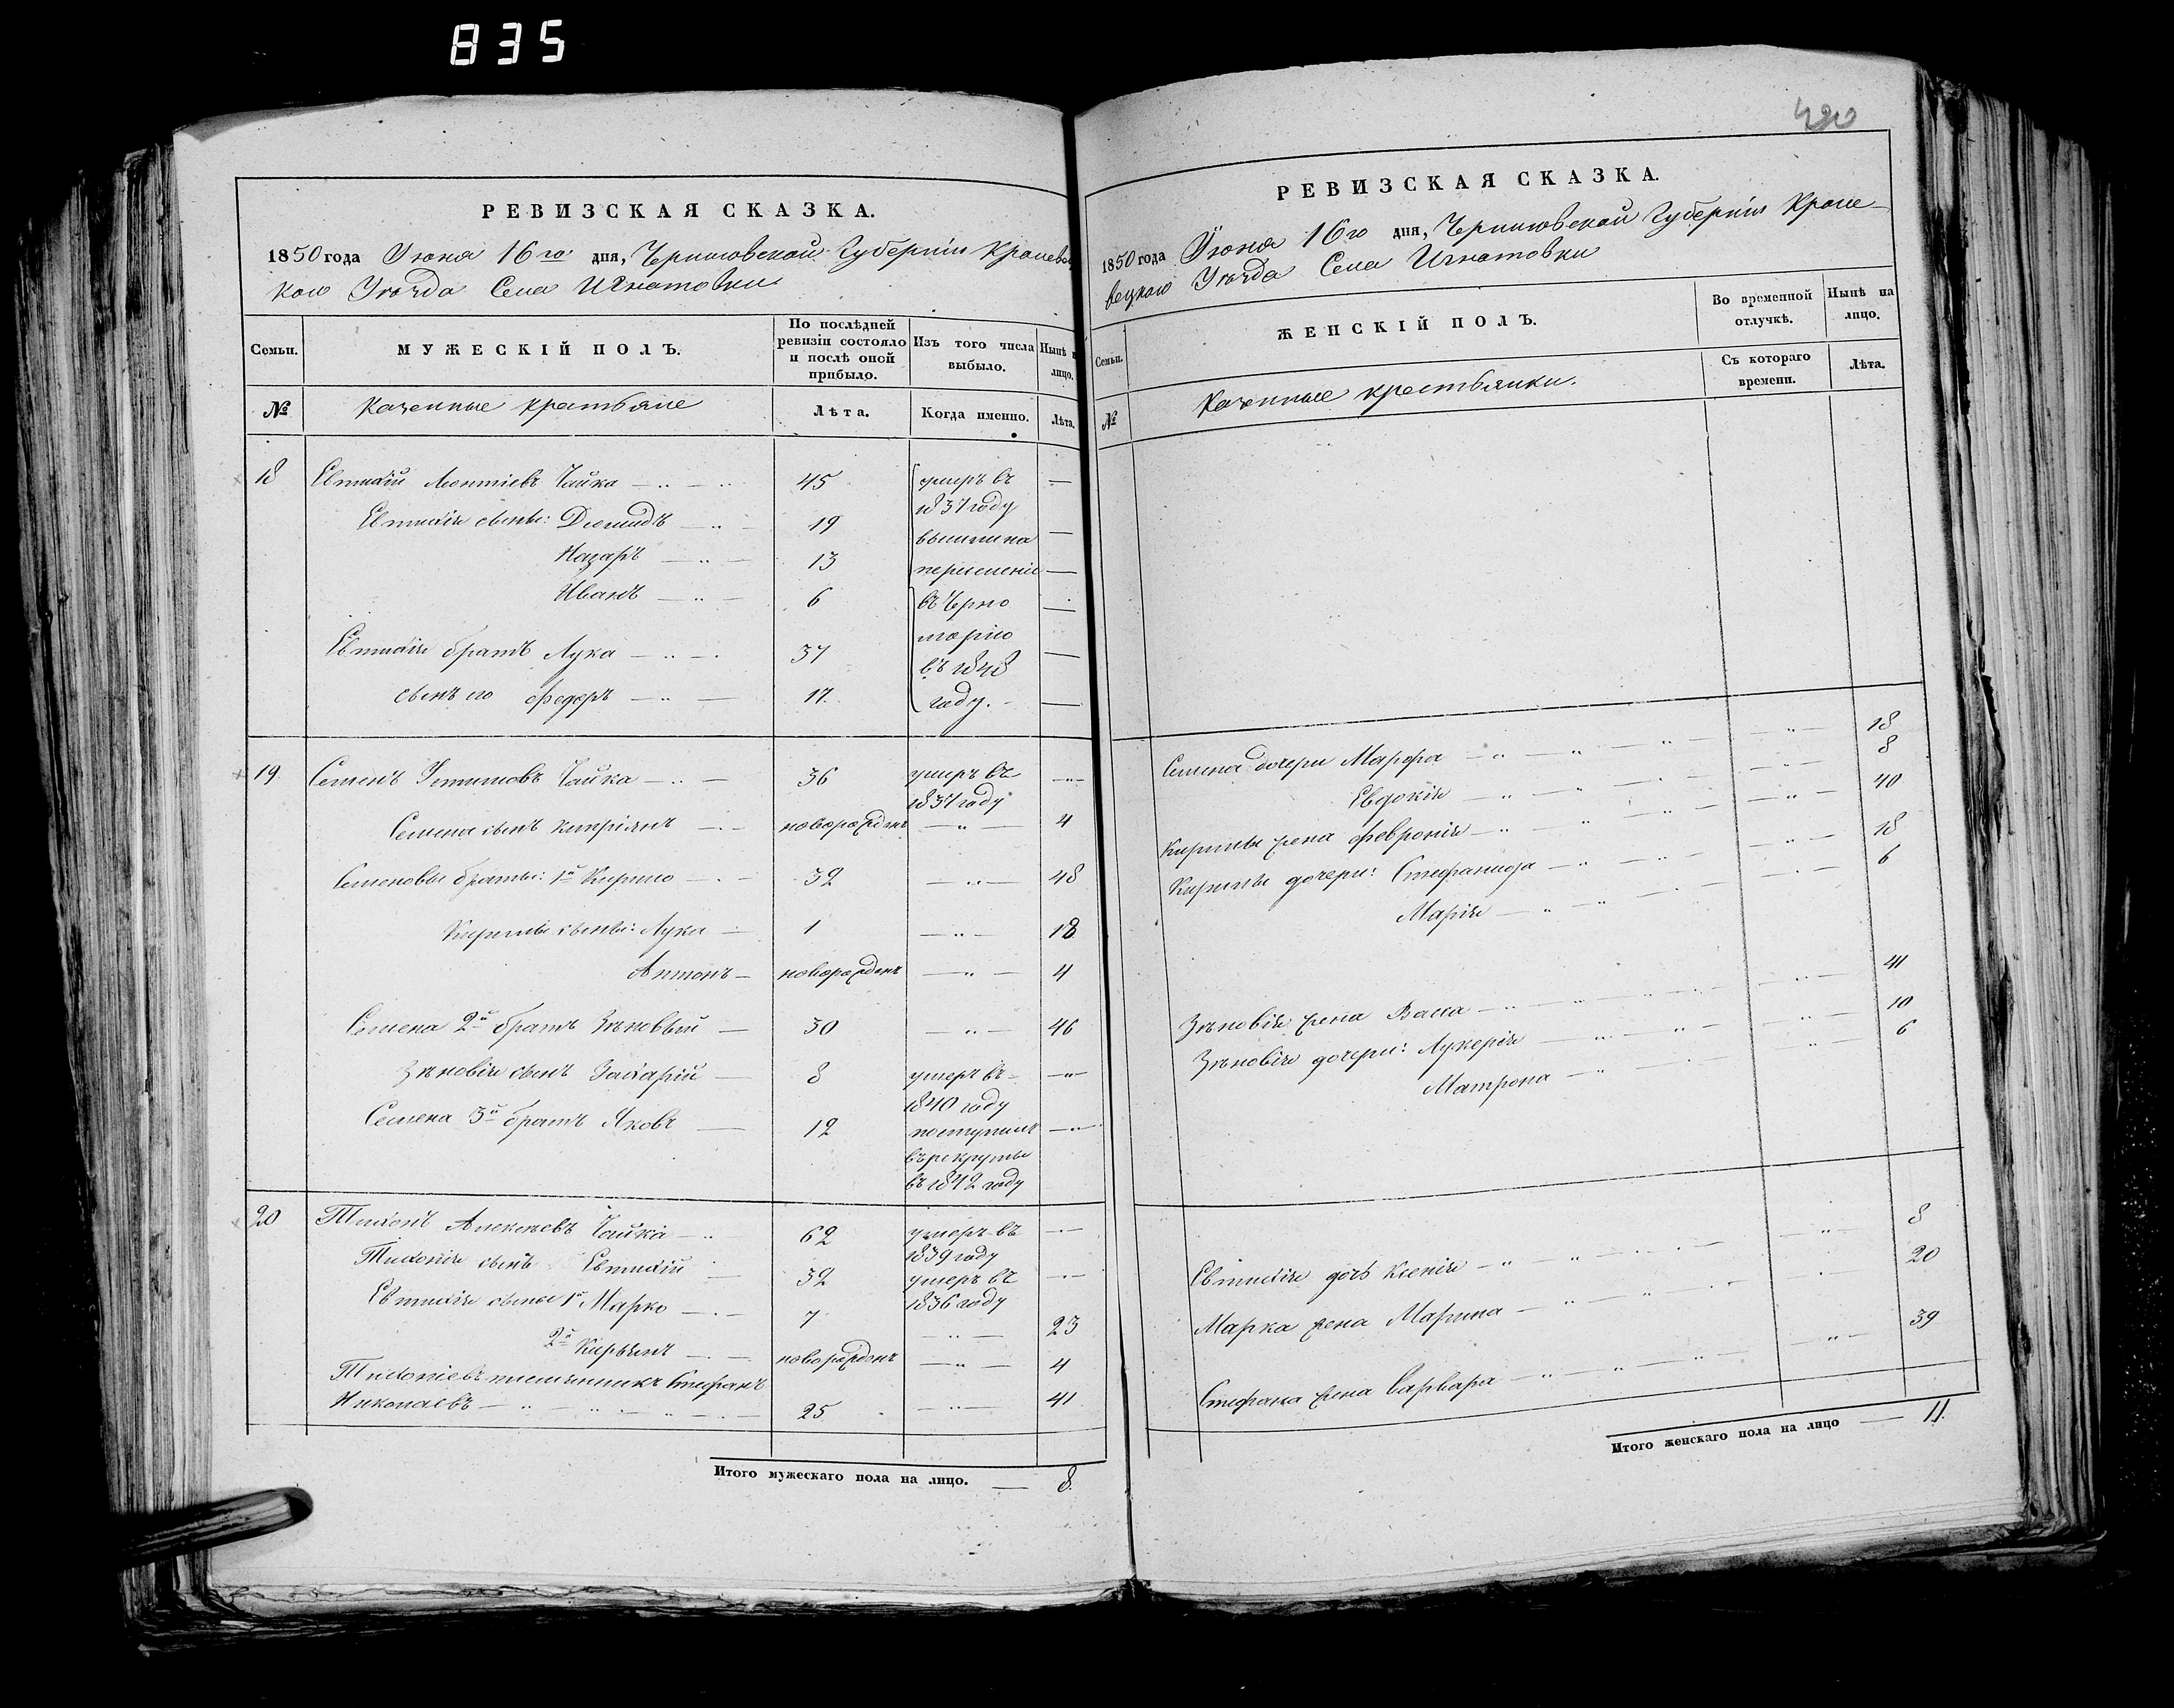 835
РЕВИЗСКАЯ СКАЗКА.
1850 года Июня 16го дня, Черниговской Губерніи Кролевец
кого Уѣзда Села Игнатовки
Семьи.
МУЖЕСКІЙ ПОЛЪ.
По послѣдней ревизіи состояло и послѣ оной прибыло.
Изъ того числа выбыло.
Нынѣ на лицо.
№
Казенные крестьяне
Лѣта.
Когда именно.
Лѣта.
18 Евтихій Леонтіевъ Чайка 45 умеръ въ 1837 году
Евтихія сыны: Демидъ 19
Назаръ 13
Иванъ 6
Евтихія братъ Лука 37
сынъ его Федоръ 17
вышли на
переселеніе
въ Черно
морію
въ 1848
году.
19. Семенъ Устимовъ Чайка 36 умеръ въ 1837 году
Семена сынъ Кипріянъ новорожденъ 4
Семеновы братья: 1й Кирило 32 48
Кирилы сыны: Лука 1 18
Антонъ новорожденъ 4
Семена 2й братъ Зѣновій 30 46
Зѣновія сынъ Захарій 8 умеръ въ 1840 году
Семена 3й братъ Яковъ 12 поступилъ
въ рекруты
въ 1842 году
20 Тихонъ Алексѣевъ Чайка 62 умеръ въ 1839 году
Тихонія сынъ Евтихій 32 умеръ въ 1836 году
Евтихія сыны 1й Марко 7 23
2й Кирьянъ новорожденъ 4
Тихоніевъ племянникъ Стефанъ
Николаевъ 25 41
Итого мужескаго пола на лицо. 8.
420
РЕВИЗСКАЯ СКАЗКА.
1850 года Июня 16го дня, Черниговской Губерніи Кроле
вецкого Уѣзда Села Игнатовки
Семьи.
ЖЕНСКІЙ ПОЛЪ.
Во временной отлучкѣ.
Нынѣ на лицо.
№
Казенные крестьянки.
Съ котораго времени.
Лѣта.
Семена дочери Марфа 18
Евдокія 8
Кирилы жена Февронія 40
Кирилы дочери: Стефанида 18
Марія 6
Зѣновія жена Васса 41
Зѣновія дочери: Лукерія 10
Матрона 6
Евтихія дочь Ксенія 8
Марка жена Марина 20
Стефана жена Варвара 39
Итого женскаго пола на лицо 11.